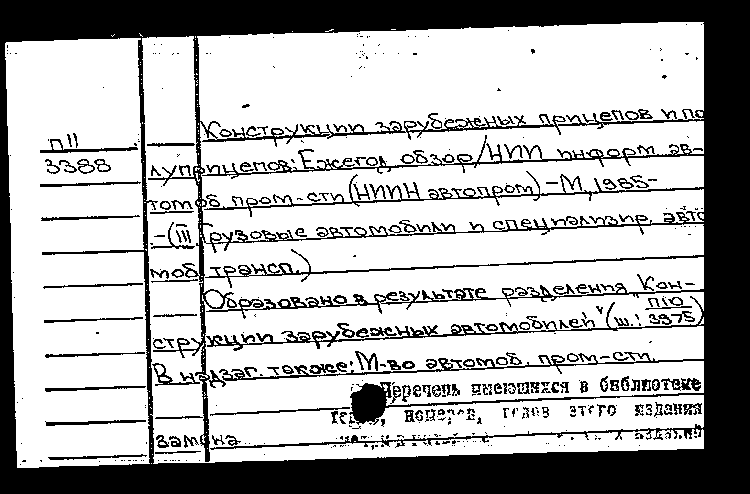 П11
3388
Конструкции зарубежных прицепов и по
луприцепов: Ежегод. обзор/НИИ информ. ав-
томоб. пром-сти (НИИН автопром). -М, 1985-
-(III. Грузовые автомобили и специализир. авто
моб. трансп.)
Образовано в результате разделения "Кон-
струкции зарубежных автомобилей" (ш.: П10
3975)
В надзаг. также: М-во автомоб. пром-сти.
Перечень имеющихся в библиотеке
номеров, годов этого издания
замена